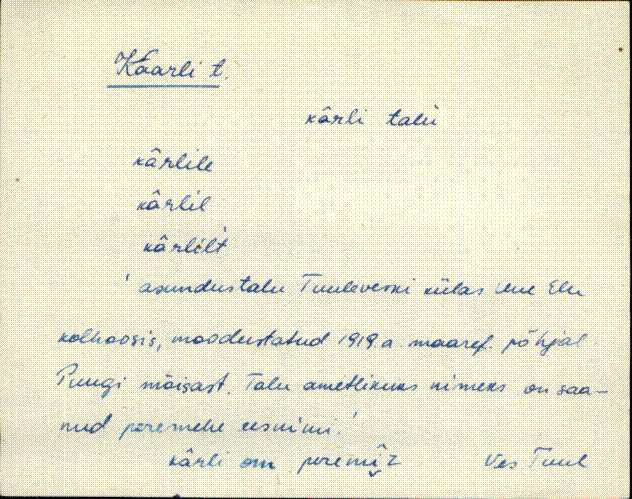 Kaarli t.
kârli talu
kârlile
kârlil
kârlilt
' asundustalu Tuuleveski külas Uue Elu
kolhoosis, moodustatud 1919.a. maaref. põhjal
Puugi mõisast. Talu ametlikuks nimeks on saa-
nud peremehe eesnimi.'
kârli om
Ves Tuul